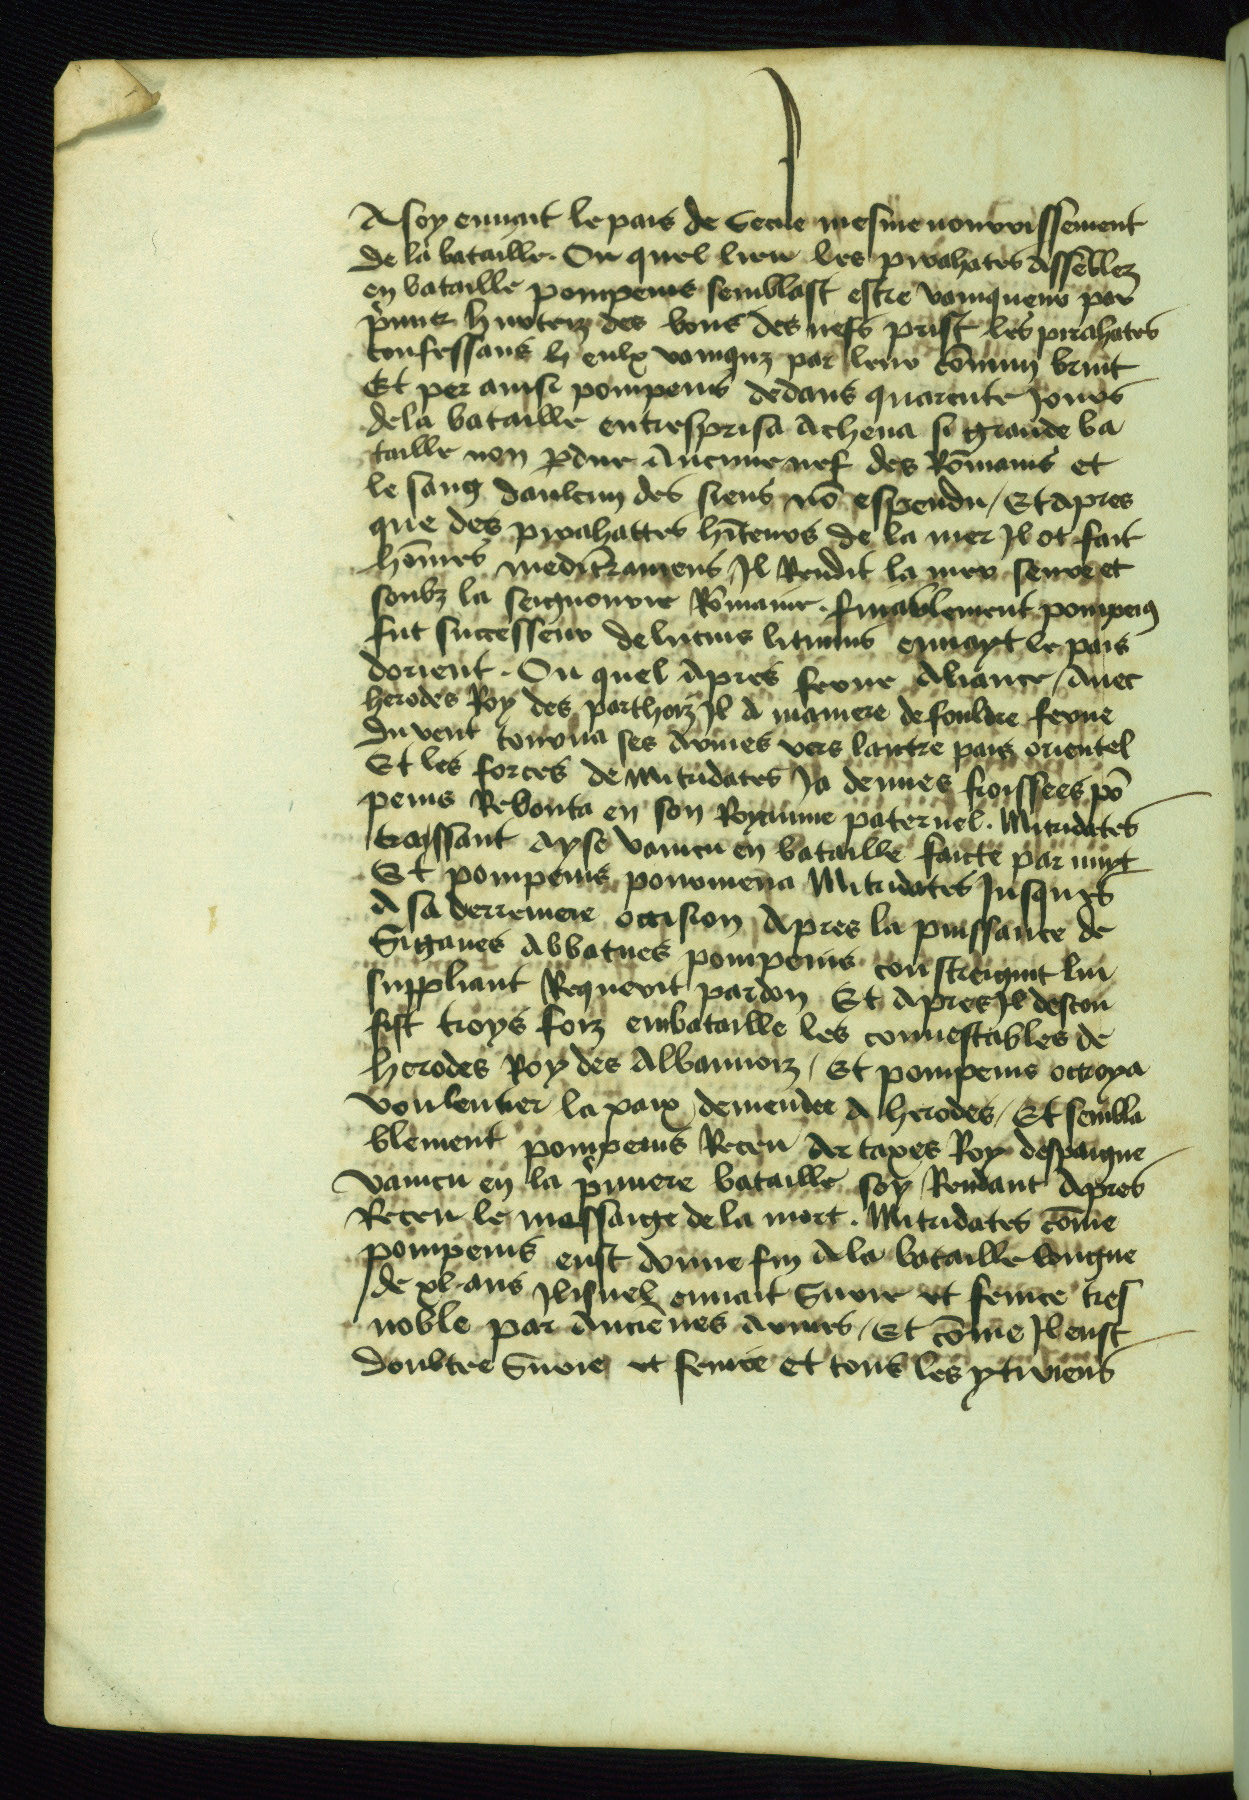 A soy enuait le pais de Secile mesme nourrissement
de la bataille. Ou quel lieu les pirahates assēblez
en bataille pompeius semblast estre vainqueur par
p̄mier hurterz des bons des nefs prist les pirahates
confessans eulx vainquz par leur cōmun bruit
Et per ainsi pompeius dedans quarente Jours
dela bataille entresprisa Acheua si grande ba
taille non perdue Aucune nef des Rōmains et
le sang daulcun des siens nō espendu / Et Apres
que des pirahattes hīteurs de la mer Jl ot fait
hōmes mediterraniens Jl Rendit la mer serue et
soubz la seignourie Rōmaine . finablement pompeius
fut successeur de lucius enuayt le pais
dorient . Ou quel Apres ferue Aliance / Auec
herodes Roy des parthoiz Jl A maniere de fouldre ferue
Du vent tourna ses Armes vers lautre pais orientel
Et les forces de Mitridates Ja dennes froissees pō
peius Rebouta en son Royaume paternel . Mitridates
traissant Ayse vaincu en bataille faicte par nuyt
Et pompeius pourmena Mitridates Jusques
A sa derreniere occision Apres la puissance de
Tigranes Abbatues pompeius constreignit lui
suppliant Requerit pardon Et Apres Jl descon
fist troys foiz embataille les connestables de
herodes Roy des Albannoiz / Et pompeius octroya
voulentier la paix demendee A herodes / Et sembla
blement pompeius Receu Ar taxes Roy despaigne
vaincu en la p̄miere bataille soy Rendant Apres
Receu le massaige de la mort . Mitridates cōme
pompeius eust donne fin A la bataille longue
de xl. ans Jl isnel enuait Surie et fenice tres
noble par Ancienes Armes / Et cōme Jl eust
doubtee Surie et fenice et tous les ytiriens